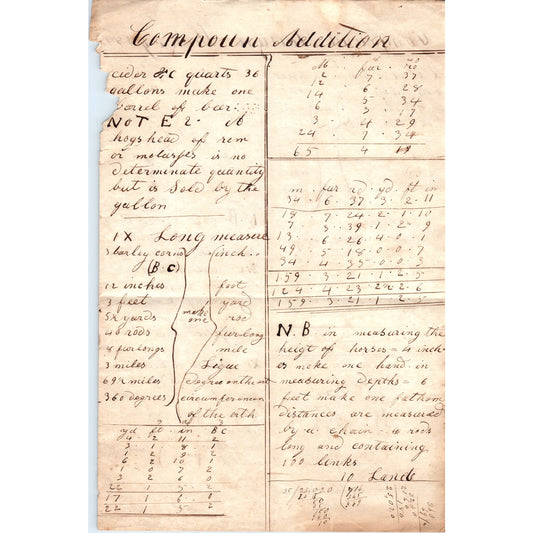 Compoun Addition
cider &C quarts 36
gallons make one
barrel of bear
NOTE 2. A
hogshead of rem
or molasses is no
determinate quantity
but is sold by the
gallon
1X Long measure
3 barley corns inch
(B.C)
12 inches foot
3 feet 1 yard
5½ yards make one rod
40 rods furlong
8 furlongs mile
3 miles Ligue
69½ miles degree on the
360 degrees circumference
of the erth
yd ft in BC
4 2 11 2
3 1 8 1
1 2 9 2
2 2 10 1
1 0 7 2
3 2 6 0
22 1 5 2
17 1 6 1
22 1 5 2
M fur ro
12 7 37
14 6 28
6 5 34
5 3 17
3 4 29
24 7 34
65 4 19
m fur rd yd ft in
34 6 37 3 2 11
19 7 24 2 1 10
7 3 39 1 2 9
13 6 26 4 0 1
49 5 18 0 0 7
34 4 35 0 0 3
159 3 21 1 2 5
124 4 23 2 2 6
159 3 21 1 2 5
N.B in measuring the
heigt of horses = 4 inch
es make one hand in
measuring depths = 6
feet make one fathom
distances are measured
by a chain 4 rods
long and containing
100 links
10 Land